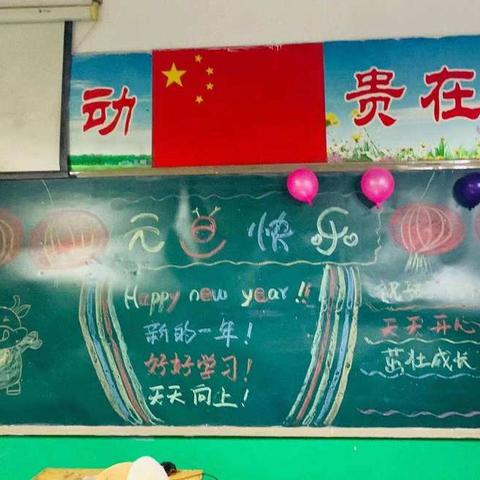 动 贵在
元旦快乐
Happy new year!!
新的一年!
好好学习!
天天向上!
祝
天天开心
茁壮成长